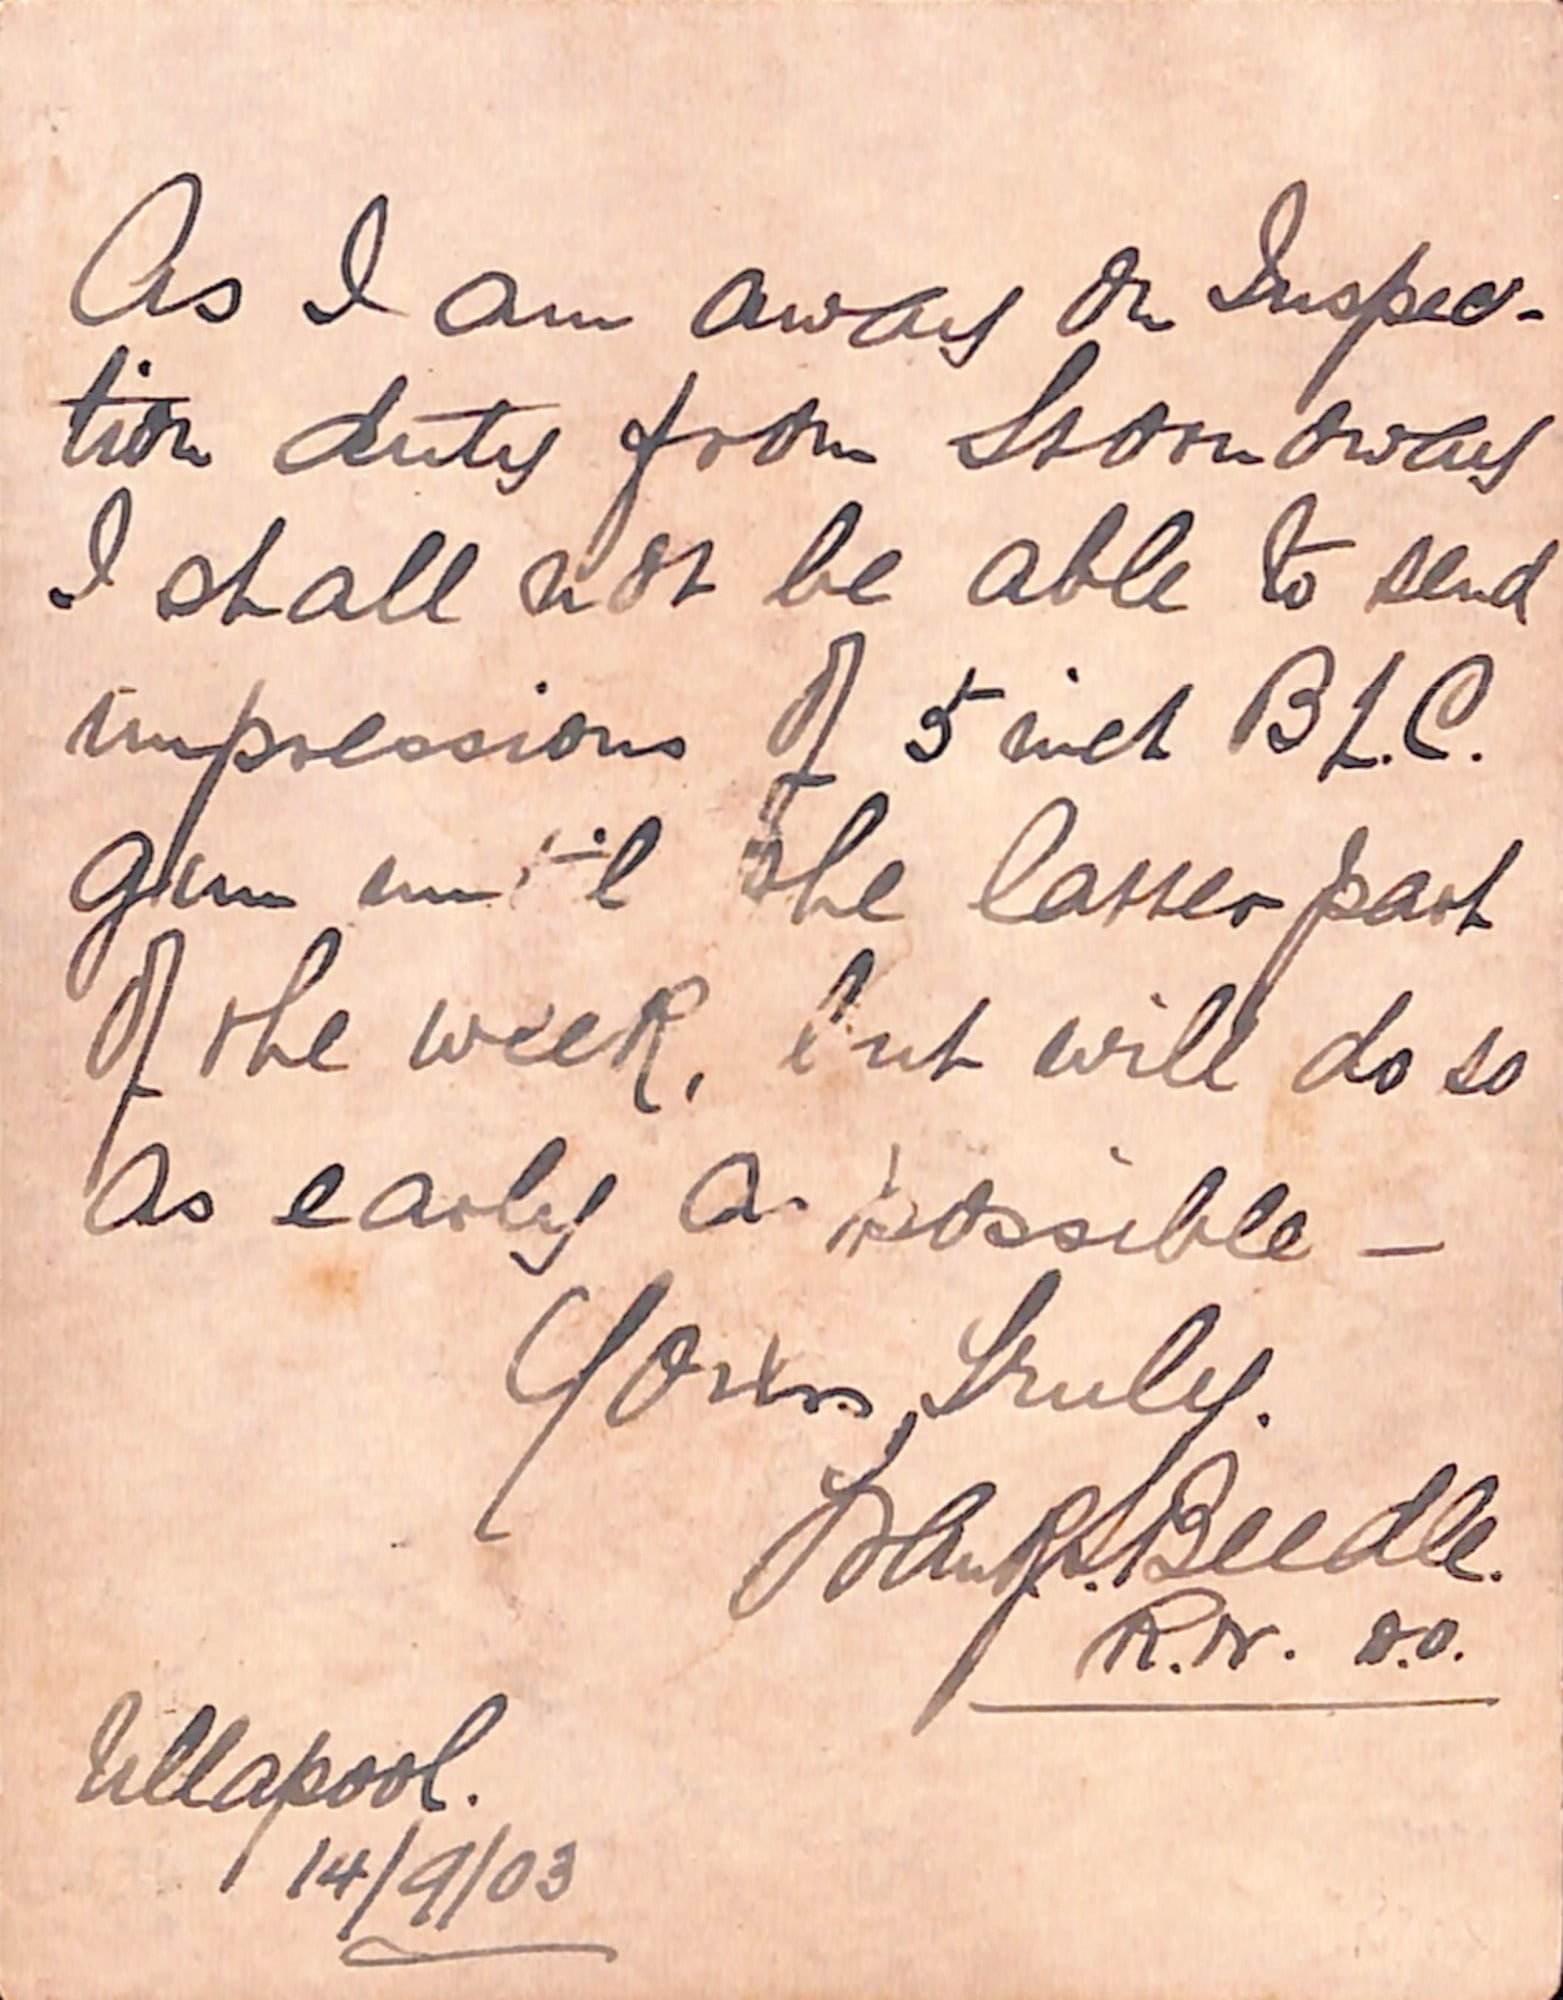 As I am away on Inspec-
tion duty from Stornoway
I shall not be able to send
impressions of 5 inch B.L.C.
gun until the latter part
of the week, but will do so
as early as possible —
Yours truly.
Frank S. Beedle.
R.N. O.O.
Ullapool.
14/9/03